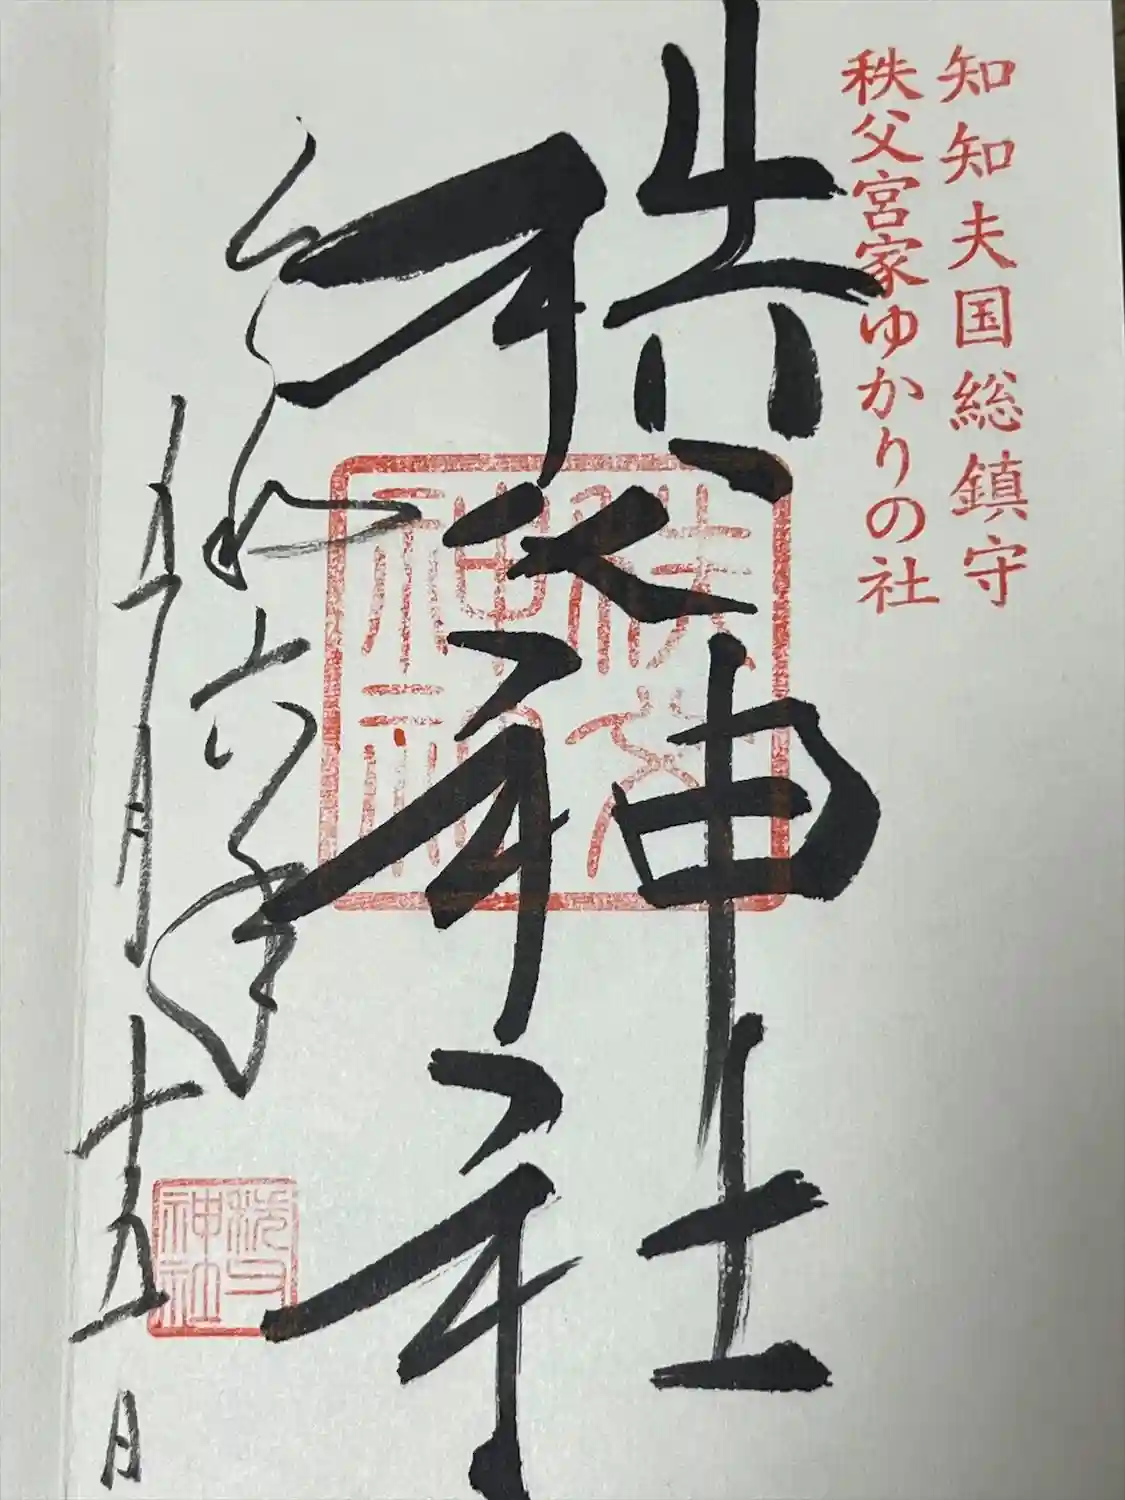 知知夫国総鎮守
秩父宮家ゆかりの社
秩父神社
秩父神社
令和六年
十五日